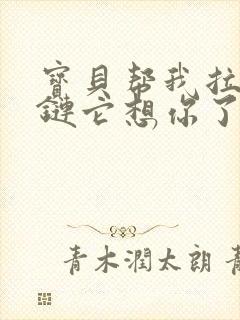 寶貝帮我拉
鏈它想你了
青木潤太朗 青